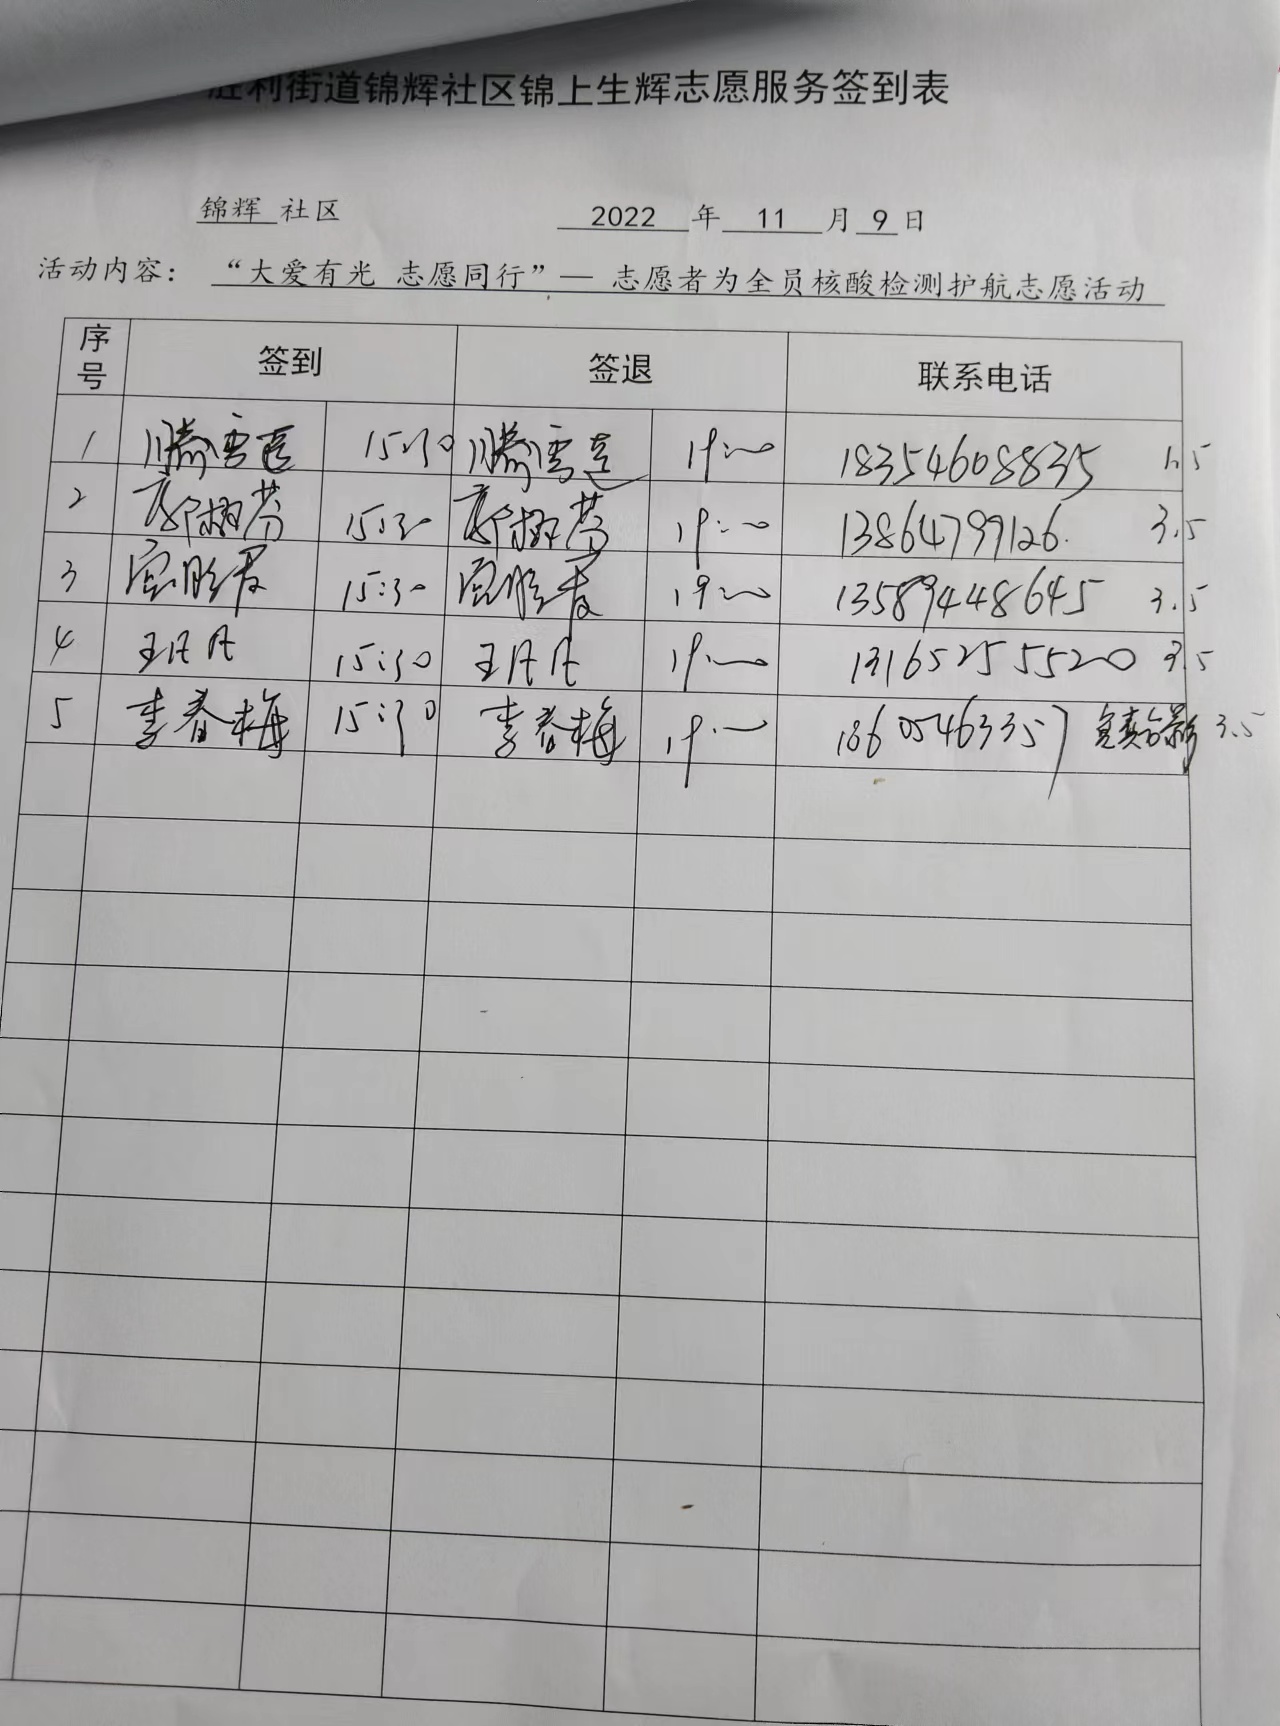 胜利街道锦辉社区锦上生辉志愿服务签到表
锦辉 社区 2022 年 11 月 9 日
活动内容： “大爱有光 志愿同行”— 志愿者为全员核酸检测护航志愿活动
序号 签到 签退 联系电话
1 15:30 19:00 18354608835 1.5
2 15:30 19:00 13864799126. 3.5
3 15:30 19:00 13589448645 3.5
4 王凡凡 15:30 王凡凡 19:00 13165255520 3.5
5 李春梅 15:30 李春梅 19:00 18605463357 3.5